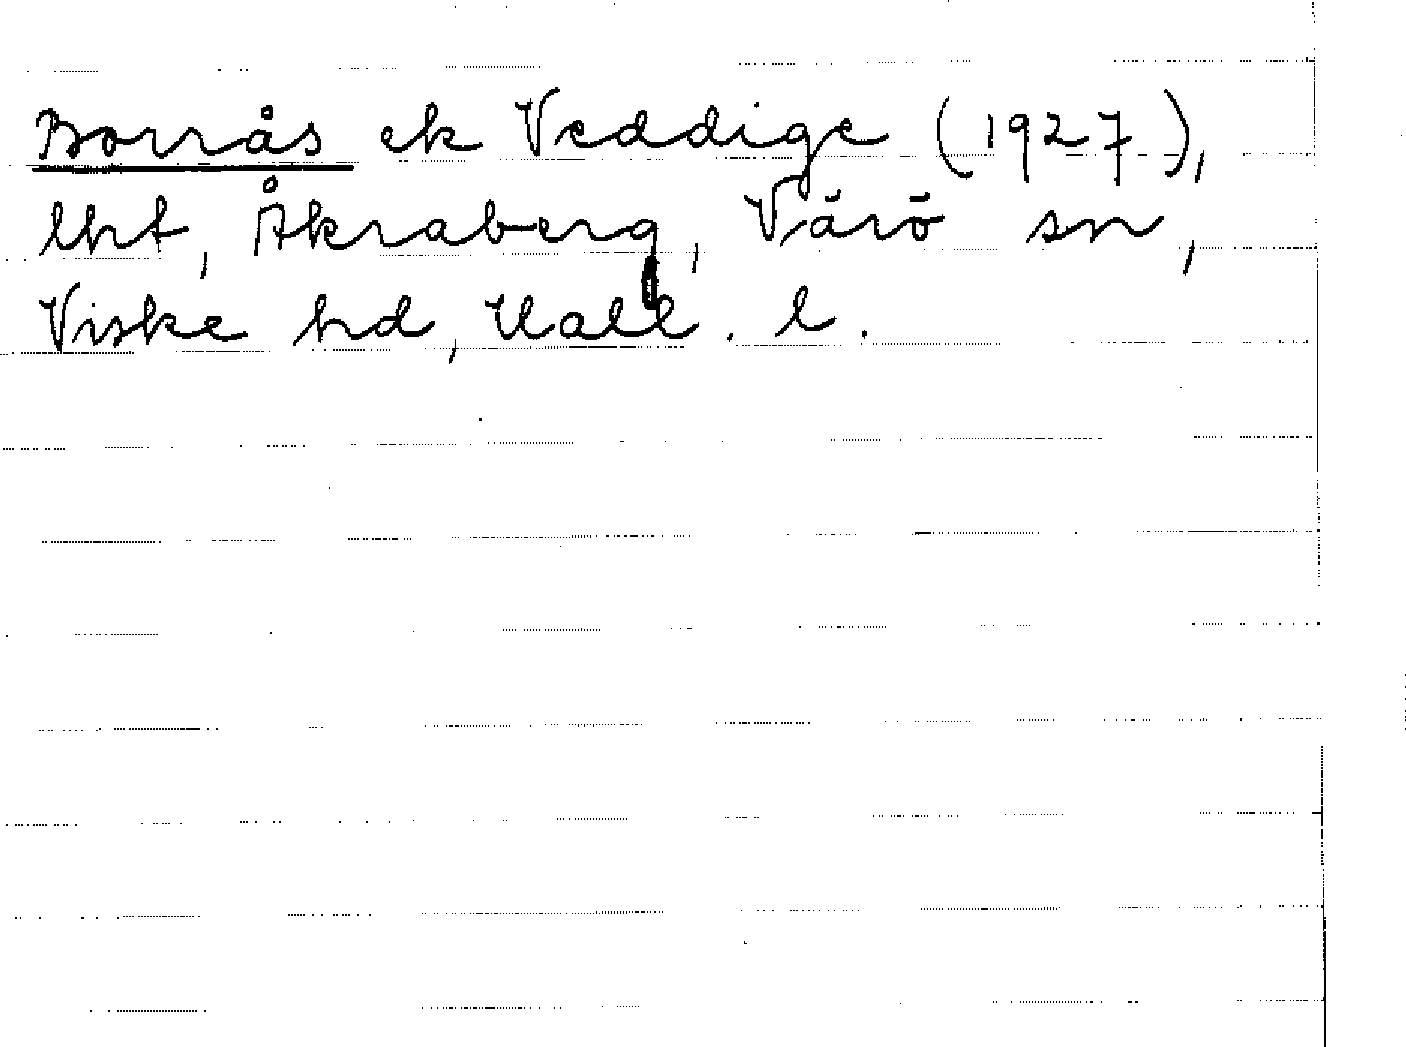 Borrås ek Veddige (1927),
lht, Åkraberg, Värö sn,
Viske hd, Hall. l.